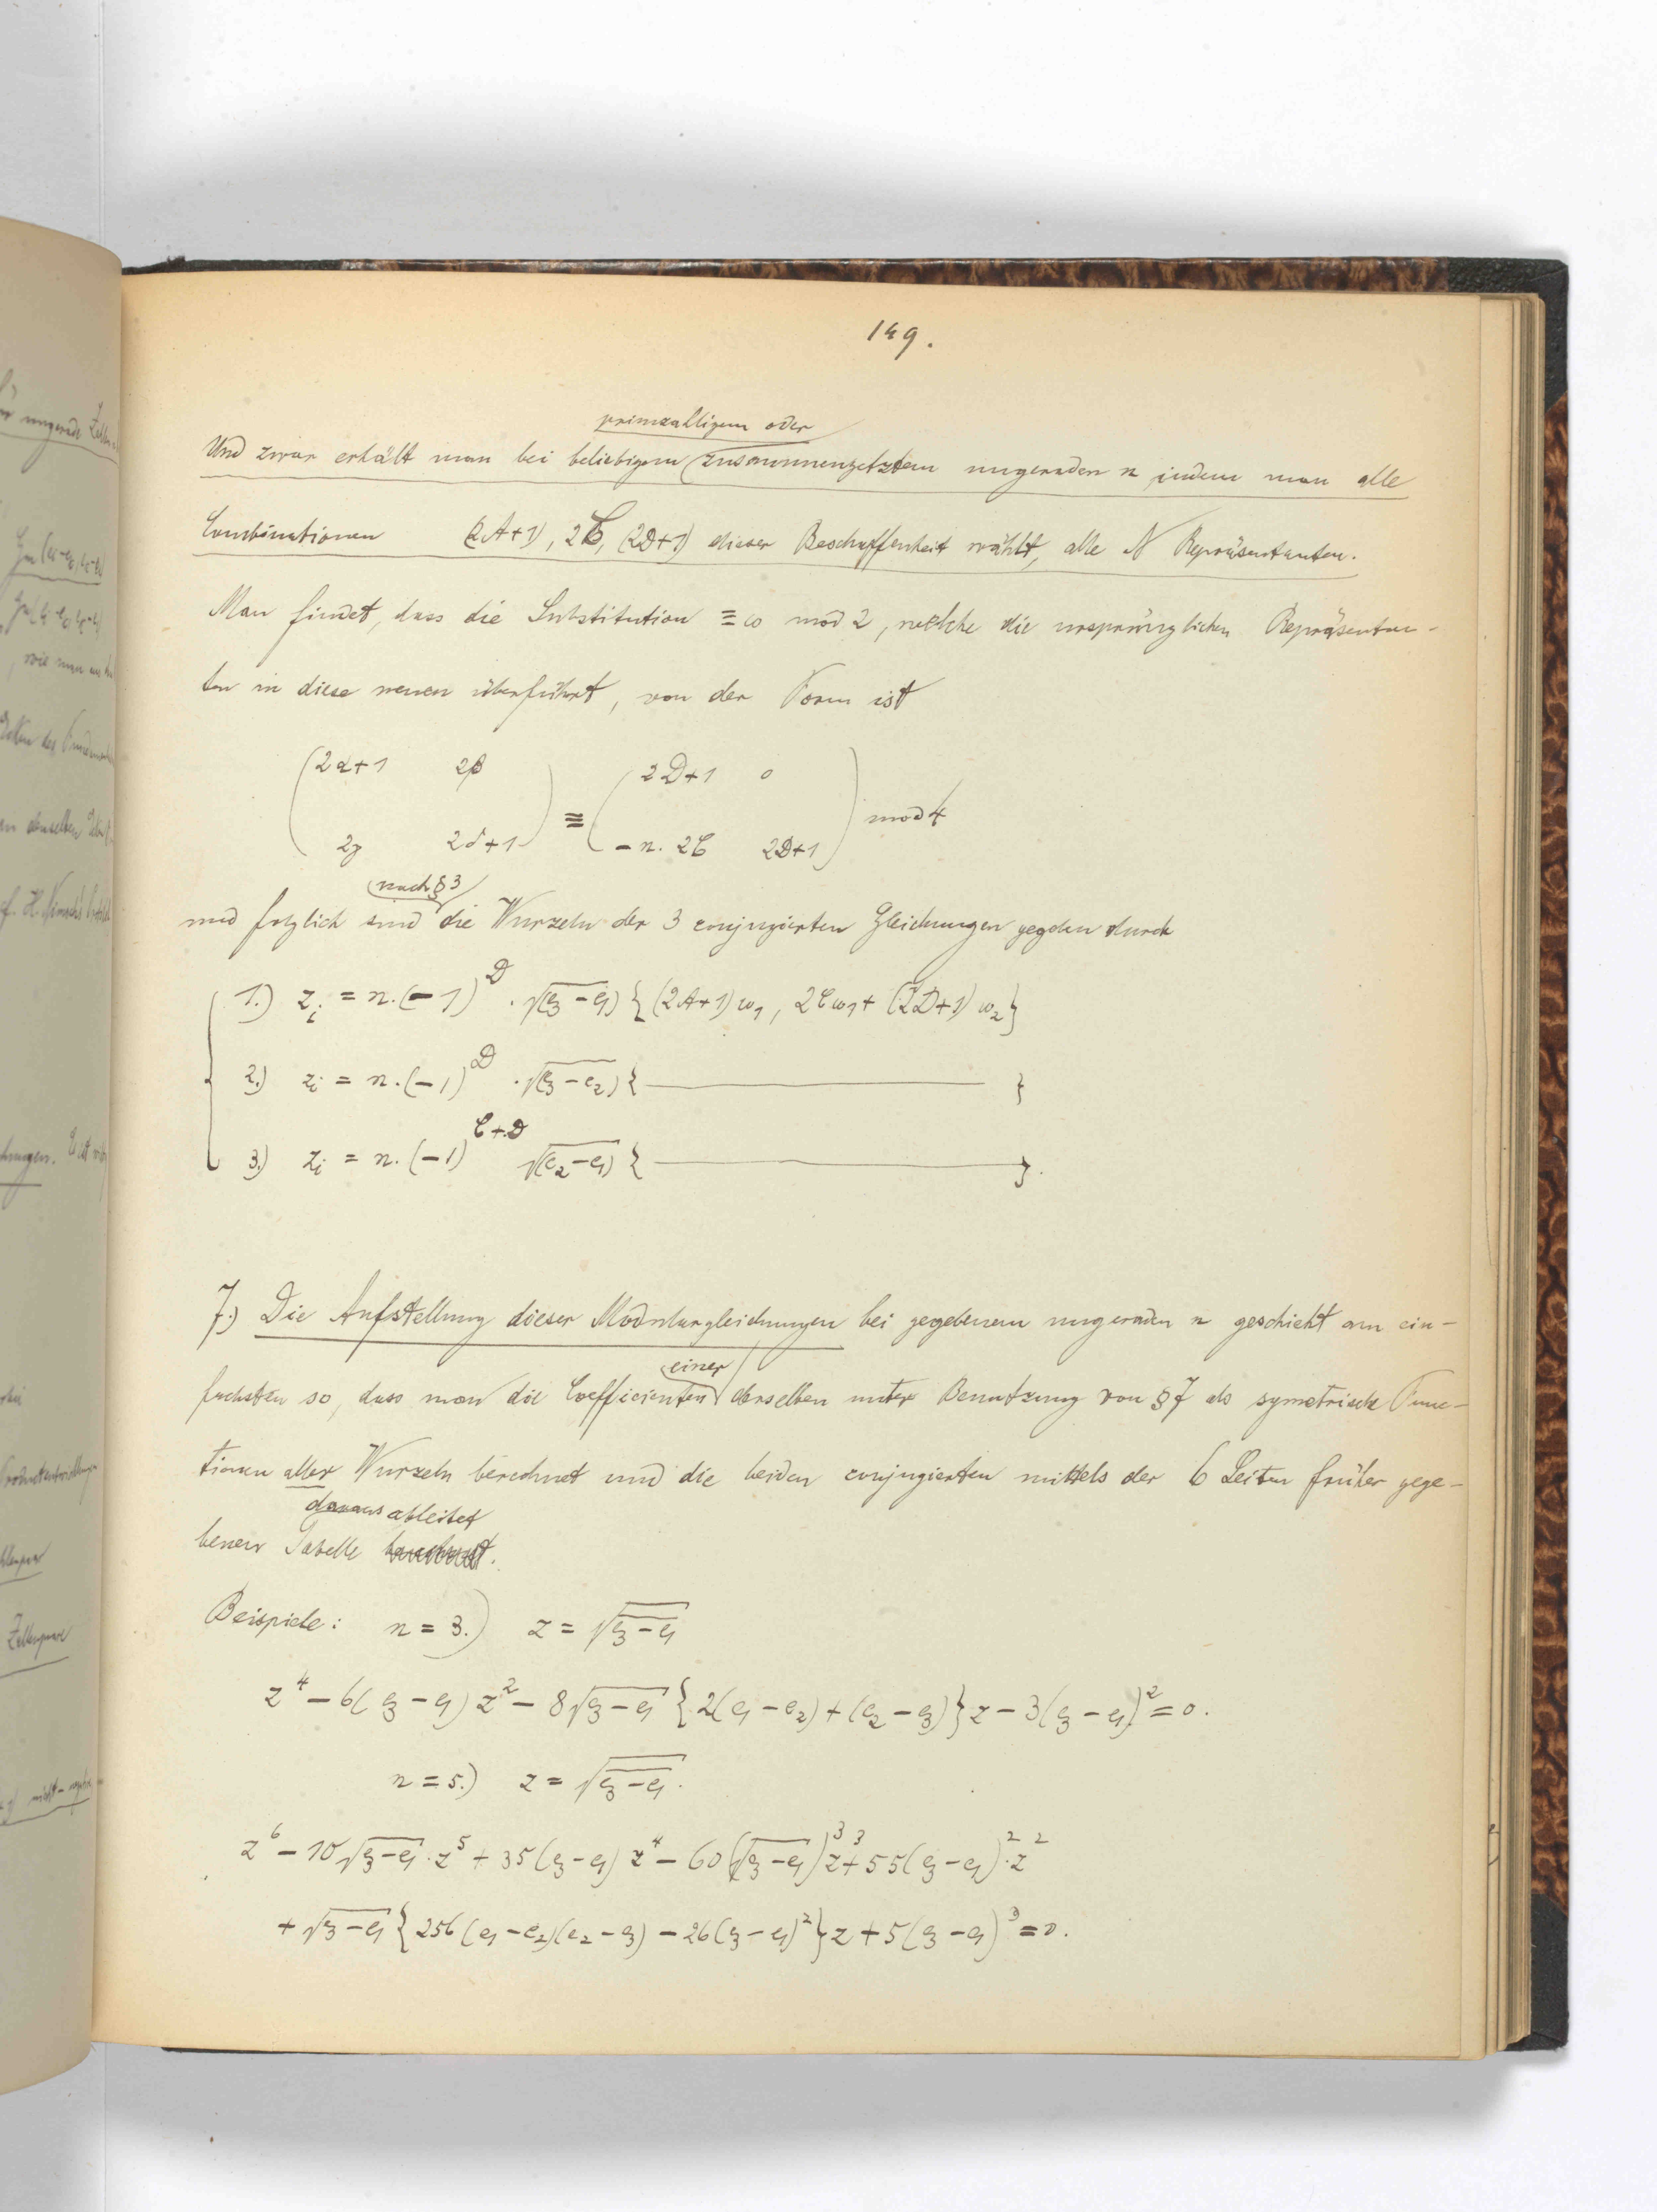 149.
primzahligem oder
Und zwar erhält man bei beliebigem zusammengesetztem ungeraden n, indem man alle
Combinationen (2A+1), 2C, (2D+1) dieser Beschaffenheit wählt, alle N Repräsentanten.
Man findet, dass die Substitution ≡ ω mod 2, welche die ursprünglichen Repräsentan-
ten in diese neuen überführt, von der Form ist
(2α+1 2β
2γ 2δ+1) ≡ (2D+1 0
-n. 2C 2D+1) mod 4
nach § 3
und folglich sind die Wurzeln der 3 conjugierten Gleichungen gegeben durch
1.) z_i = n.(-1)^D . √(e₃-e₁) {(2A+1)ω₁, 2Cω₁+(2D+1)ω₂}
2.) z_i = n.(-1)^D . √(e₃-e₂) { ——— }
3.) z_i = n.(-1)^{C+D} √(e₂-e₁) { ——— }.
7.) Die Aufstellung dieser Modulargleichungen bei gegebenem ungeraden n geschieht am ein-
einer
fachsten so, dass man die Coefficienten derselben unter Benutzung von § 7 als symetrische Func-
tionen aller Wurzeln berechnet und die beiden conjugierten mittels der 6 Seiten früher gege-
daraus ableitet
benen Tabelle berechnet.
Beispiele: n = 3.) z = √(e₃-e₁)
z⁴ - 6(e₃-e₁)z² - 8√(e₃-e₁) {2(e₁-e₂)+(e₂-e₃)}z - 3(e₃-e₁)² = 0.
n = 5.) z = √(e₃-e₁).
z⁶ - 10√(e₃-e₁).z⁵ + 35(e₃-e₁)z⁴ - 60(√(e₃-e₁))³z³ + 55(e₃-e₁)².z²
+ √(e₃-e₁) {256(e₁-e₂)(e₂-e₃) - 26(e₃-e₁)²}z + 5(e₃-e₁)³ = 0.